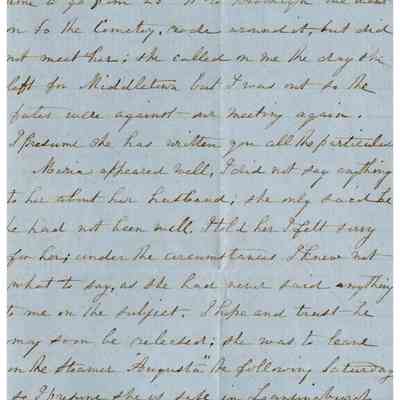 to go from 23 Brooklyn we went
on to the Cemetery, rode around it, but did
not meet her; she called on me the day she
left for Middletown but I was out so the
fates were against our meeting again.
I presume she has written you all the particulars
Maria appeared well, I did not say anything
to her about her husband; she only said he
he had not been well. I told her I felt sorry
for her; under the circumstances I knew not
what to say, as she had never said anything
to me on the subject. I hope and trust he
may soon be released; she was to leave
on the Steamer "Augusta" the following Saturday
so I presume she is safe in Lansingburgh